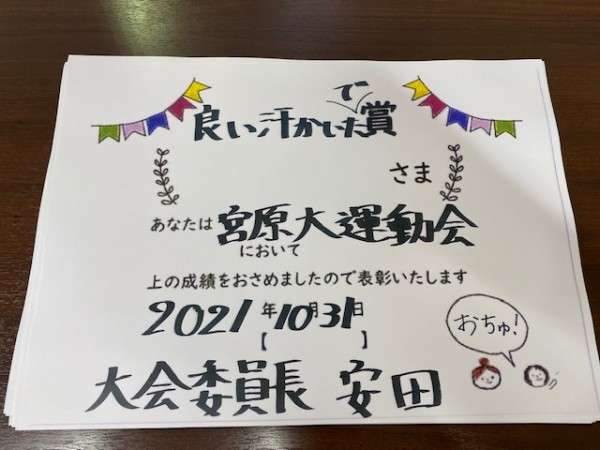 良い汗かいたで賞
さま
あなたは宮原大運動会
において
上の成績をおさめましたので表彰いたします
2021年10月31日
【 】
大会委員長 安田
おちゅ!